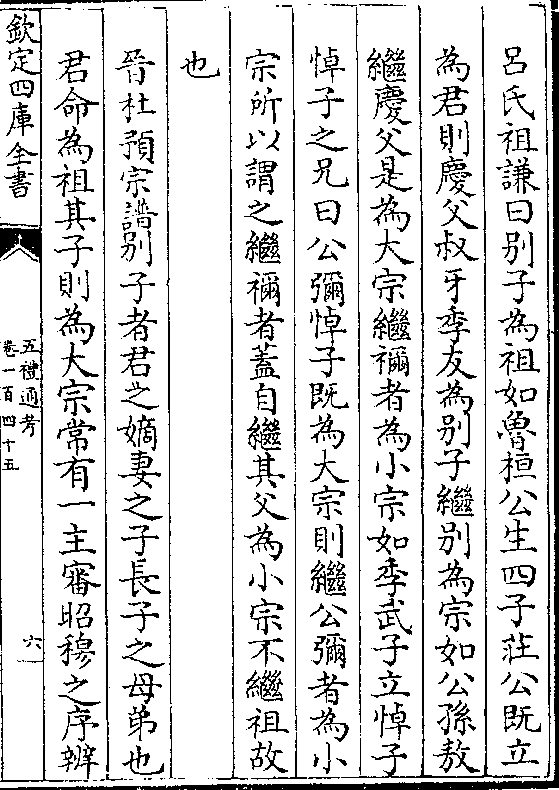 呂氏祖謙曰别子為祖如魯桓公生四子莊公既立
為君則慶父叔牙季友為别子繼别為宗如公孫敖
繼慶父是為大宗繼禰者為小宗如季武子立悼子
悼子之兄曰公彌悼子既為大宗則繼公彌者為小
宗所以謂之繼禰者蓋自繼其父為小宗不繼祖故
也
晉杜預宗譜别子者君之嫡妻之子長子之母弟也
君命為祖其子則為大宗常有一主審昭穆之序辨
欽定四庫全書
五禮通考
卷一百四十五
六